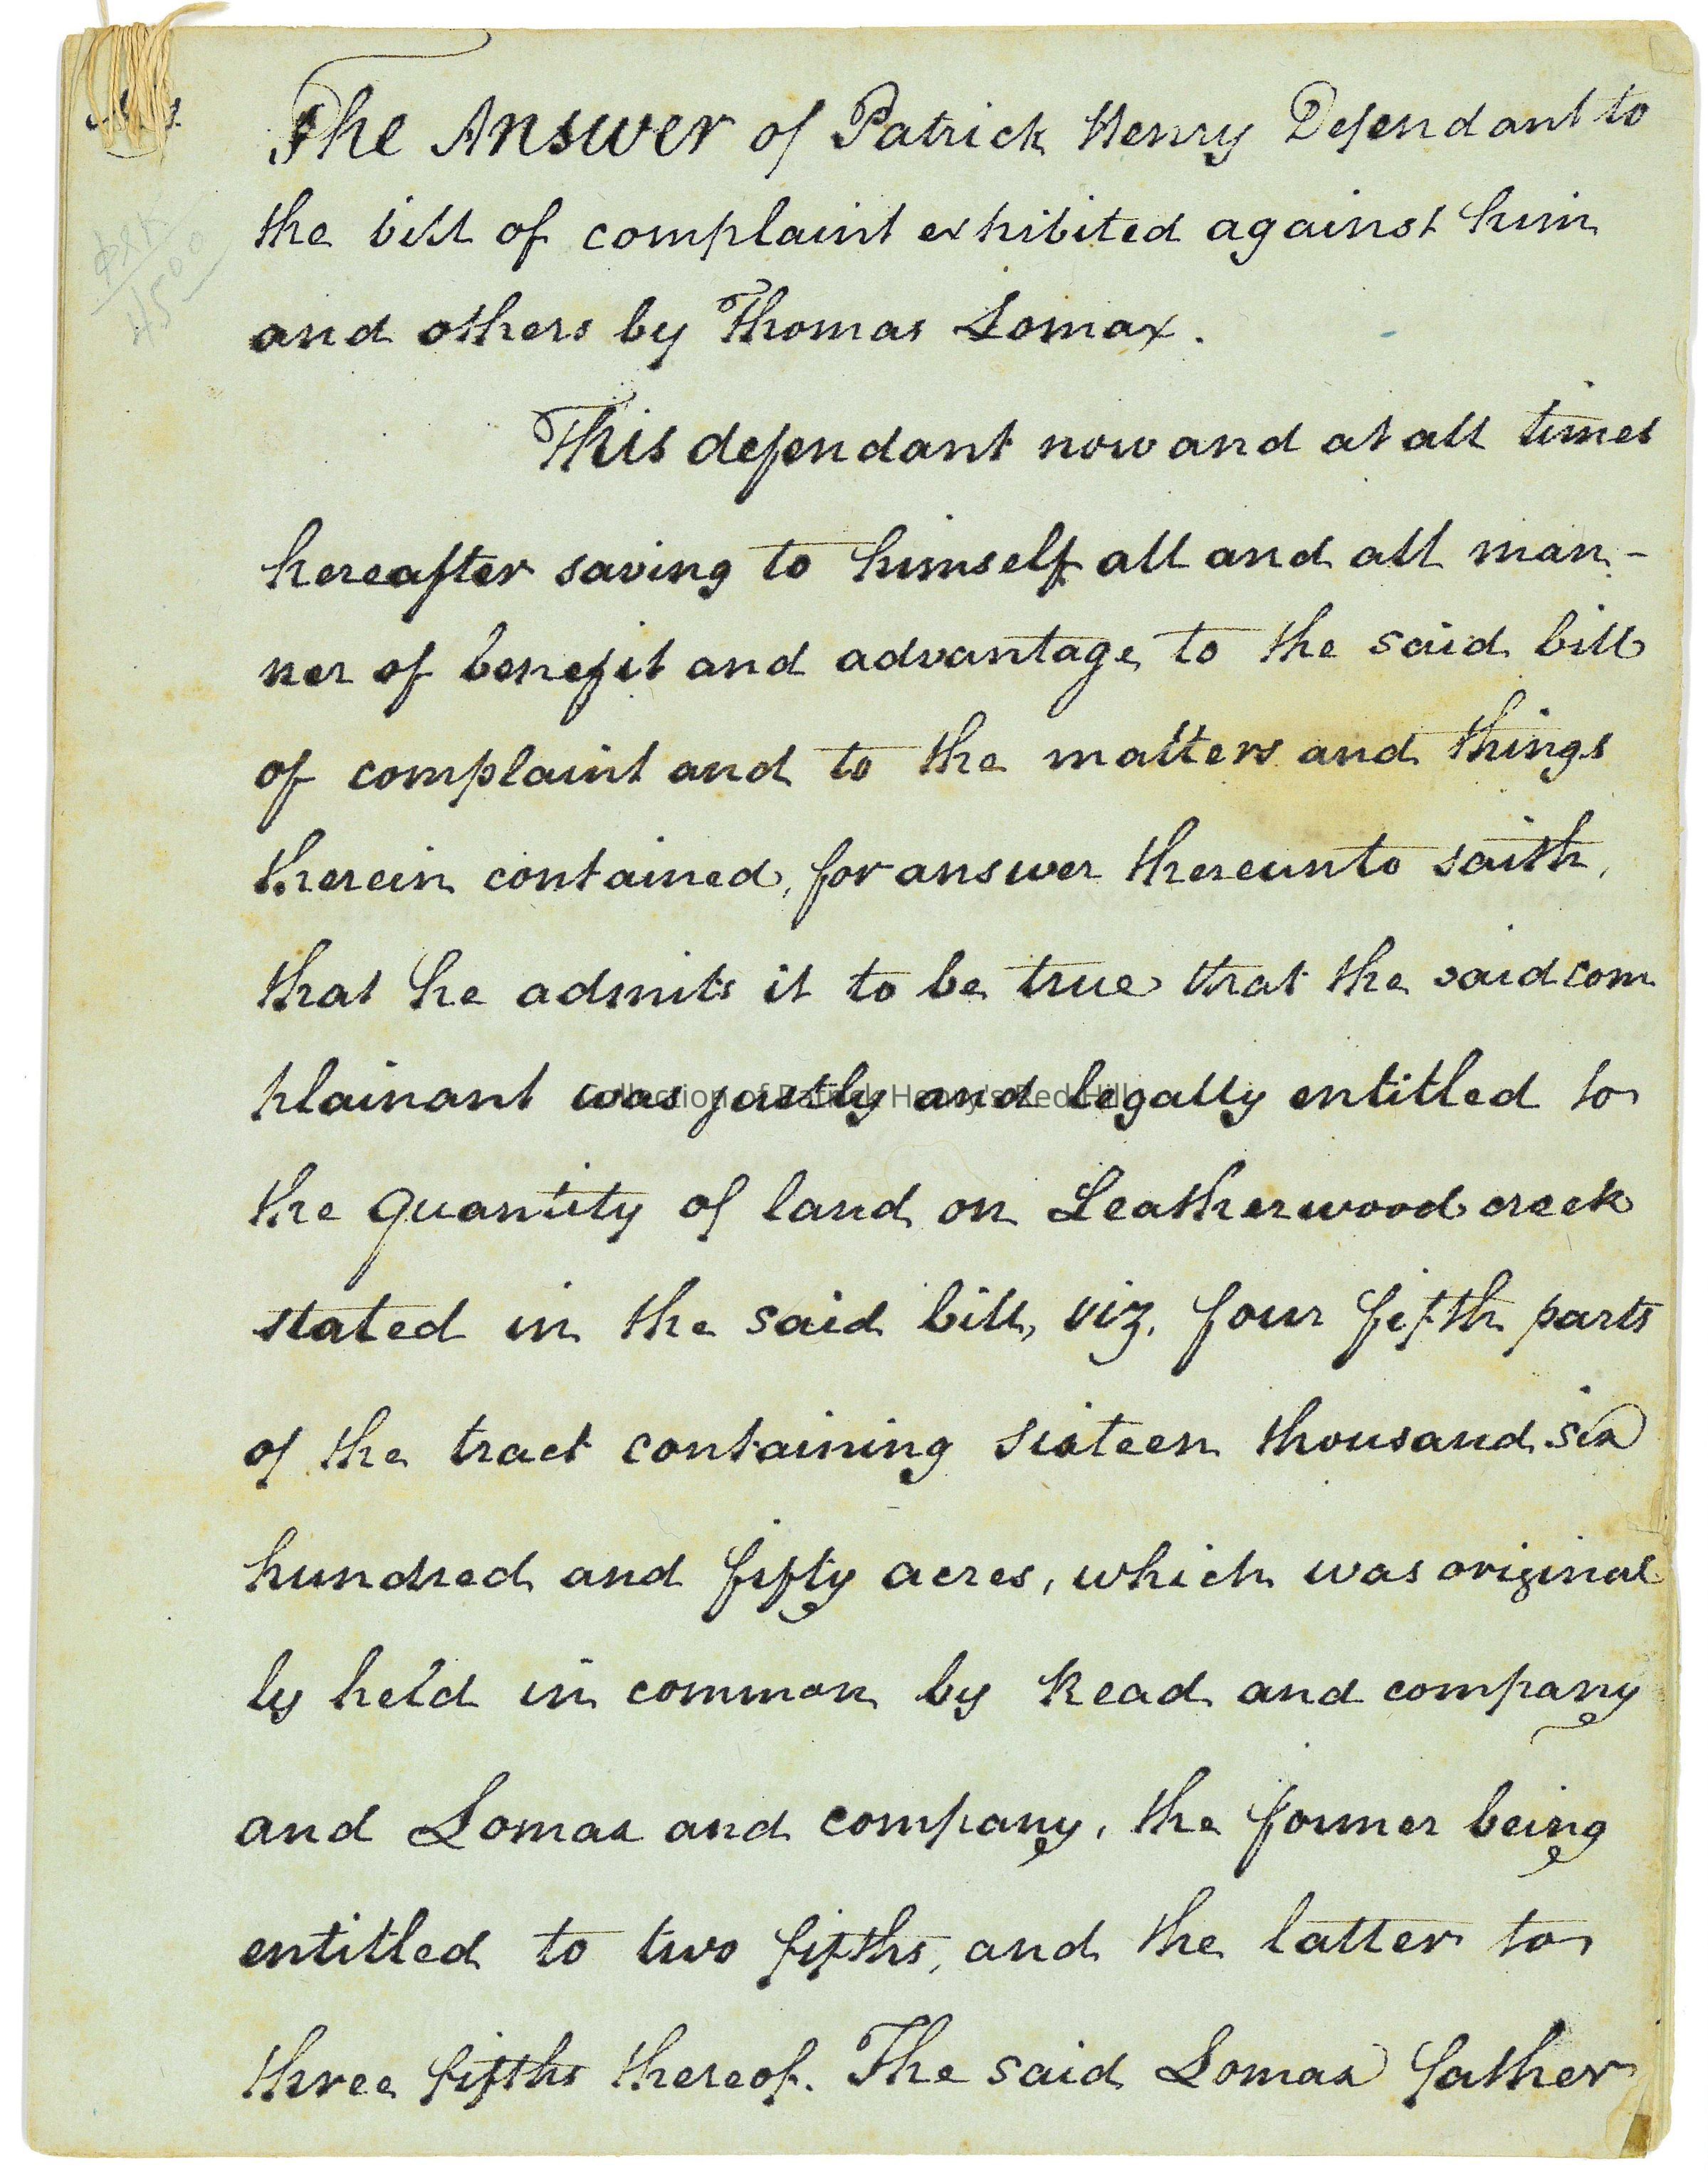 The Answer of Patrick Henry Defendant to
the bill of complaint exhibited against him
and others by Thomas Lomax.
This defendant now and at all times
hereafter saving to himself all and all man-
ner of benefit and advantage to the said bill
of complaint and to the matters and things
therein contained, for answer thereunto saith,
that he admits it to be true that the said com
plainant was justly and legally entitled to
Collection of Patrick Henry's Red Hill
the quantity of land on Leatherwood creek
stated in the said bill, viz. four fifth parts
of the tract containing sixteen thousand six
hundred and fifty acres, which was original
ly held in common by Read and company
and Lomax and company, the former being
entitled to two fifths, and the latter to
three fifths thereof. The said Lomax father